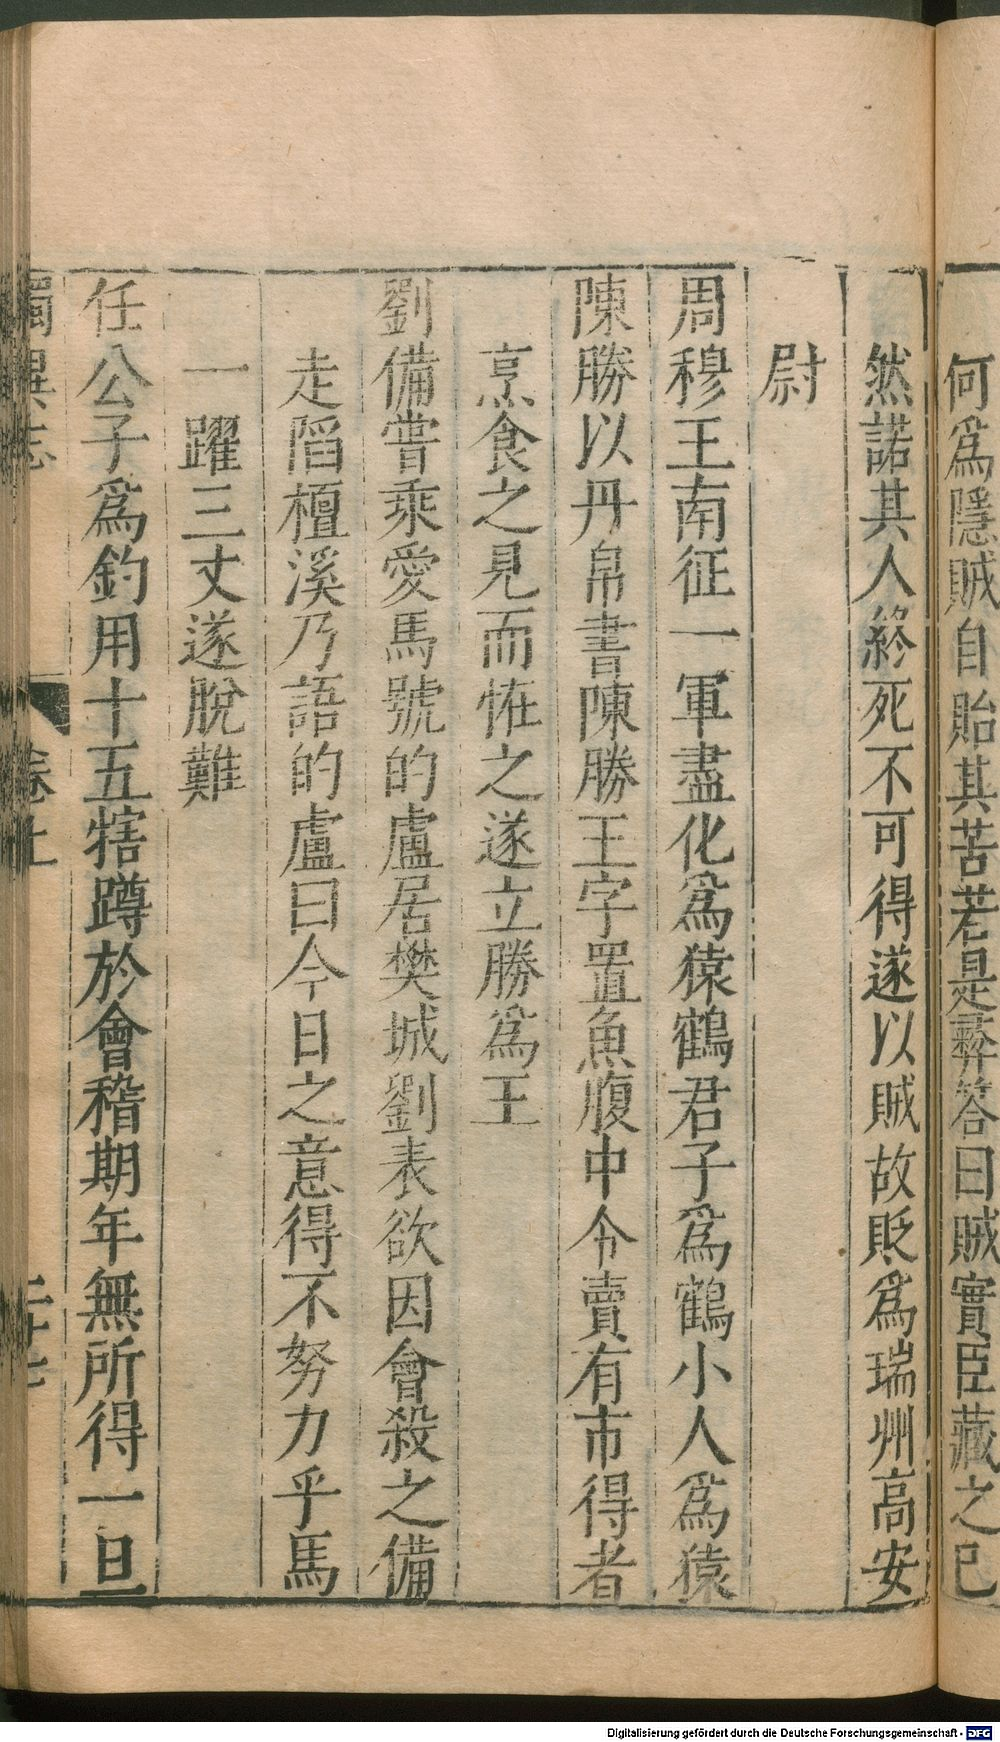 何爲隱賊自貽其苦若是彛答曰賊實臣藏之已
然諾其人終死不可得遂以賊故貶爲瑞州高安
尉
周穆王南征一軍盡化爲猿鶴君子爲鶴小人爲猿
陳勝以丹帛書陳勝王字置魚腹中令賣有市得者
烹食之見而恠之遂立勝爲王
劉備嘗乘愛馬號的盧居樊城劉表欲因會殺之備
走䧟檀溪乃語的盧曰今日之意得不努力乎馬
一躍三丈遂脫難
任公子爲釣用十五犗蹲於會稽期年無所得一旦
獨異志 卷上 二十七
Digitalisierung gefördert durch die Deutsche Forschungsgemeinschaft - DFG